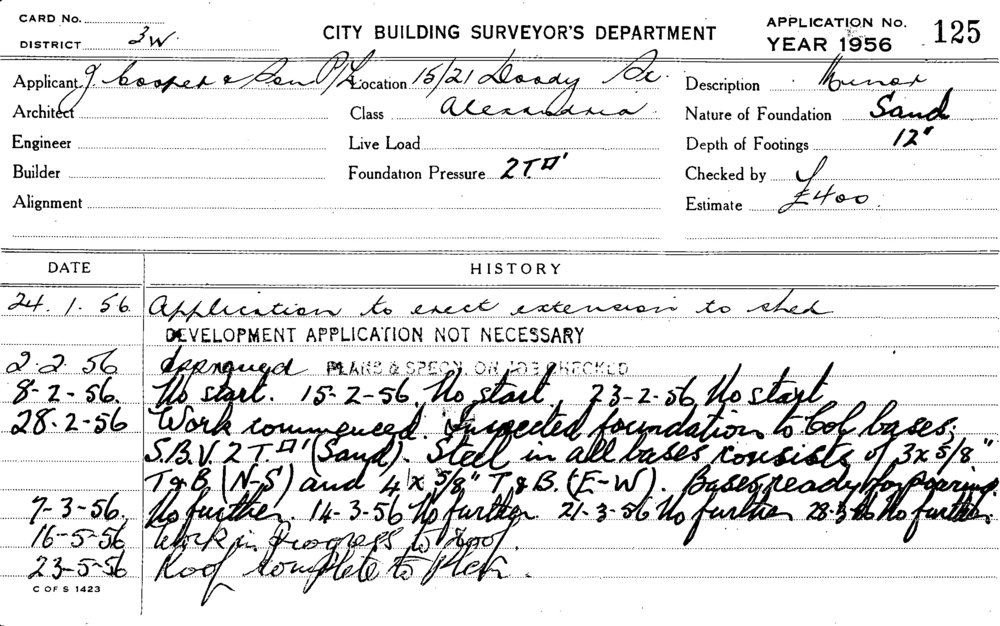 CARD No.
DISTRICT 3W
CITY BUILDING SURVEYOR'S DEPARTMENT
APPLICATION No. 125
YEAR 1956
Applicant J Cooper & Son P/L Location 15/21 Doody St. Description Minor
Architect Class Alexandria Nature of Foundation Sand
Engineer Live Load Depth of Footings 12"
Builder Foundation Pressure 2T□' Checked by
Alignment Estimate £400.
DATE HISTORY
24.1.56. Application to erect extension to shed
DEVELOPMENT APPLICATION NOT NECESSARY
2.2.56 Approved PLANS & SPECN. ON JOB CHECKED
8-2-56. No start. 15-2-56 No start 23-2-56 No start
28.2-56 Work commenced. Inspected foundation to Col bases.
S.B.V. 2T□' (Sand). Steel in all bases consists of 3 x 5/8"
T & B (N-S) and 4 x 5/8" T & B. (E-W). Bases ready for pouring.
7-3-56. No further. 14-3-56 No further 21-3-56 No further 28-3-56 No further.
16-5-56 Work in progress to roof.
23-5-56 Roof complete to Plan.
C OF S 1423